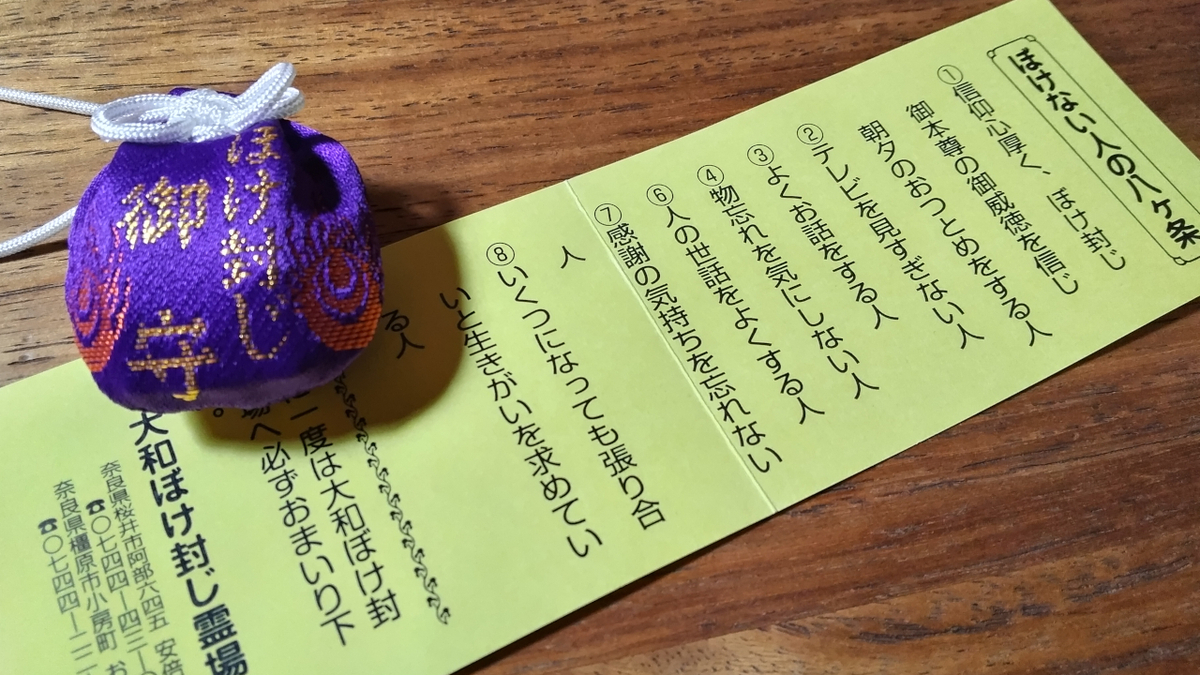 ぼけ封じ
御守
ぼけない人の八ヶ条
①信仰心厚く、ぼけ封じ
御本尊の御威徳を信じ
朝夕のおつとめをする人
②テレビを見すぎない人
③よくお話をする人
④物忘れを気にしない人
⑥人の世話をよくする人
⑦感謝の気持ちを忘れない
人
⑧いくつになっても張り合
いと生きがいを求めてい
る人
一度は大和ぼけ封
場へ必ずおまいり下
。
大和ぼけ封じ霊場
奈良県桜井市阿部六四五 安倍
☎〇七四四ー四三ー〇
奈良県橿原市小房町 お
☎〇七四四ー二二